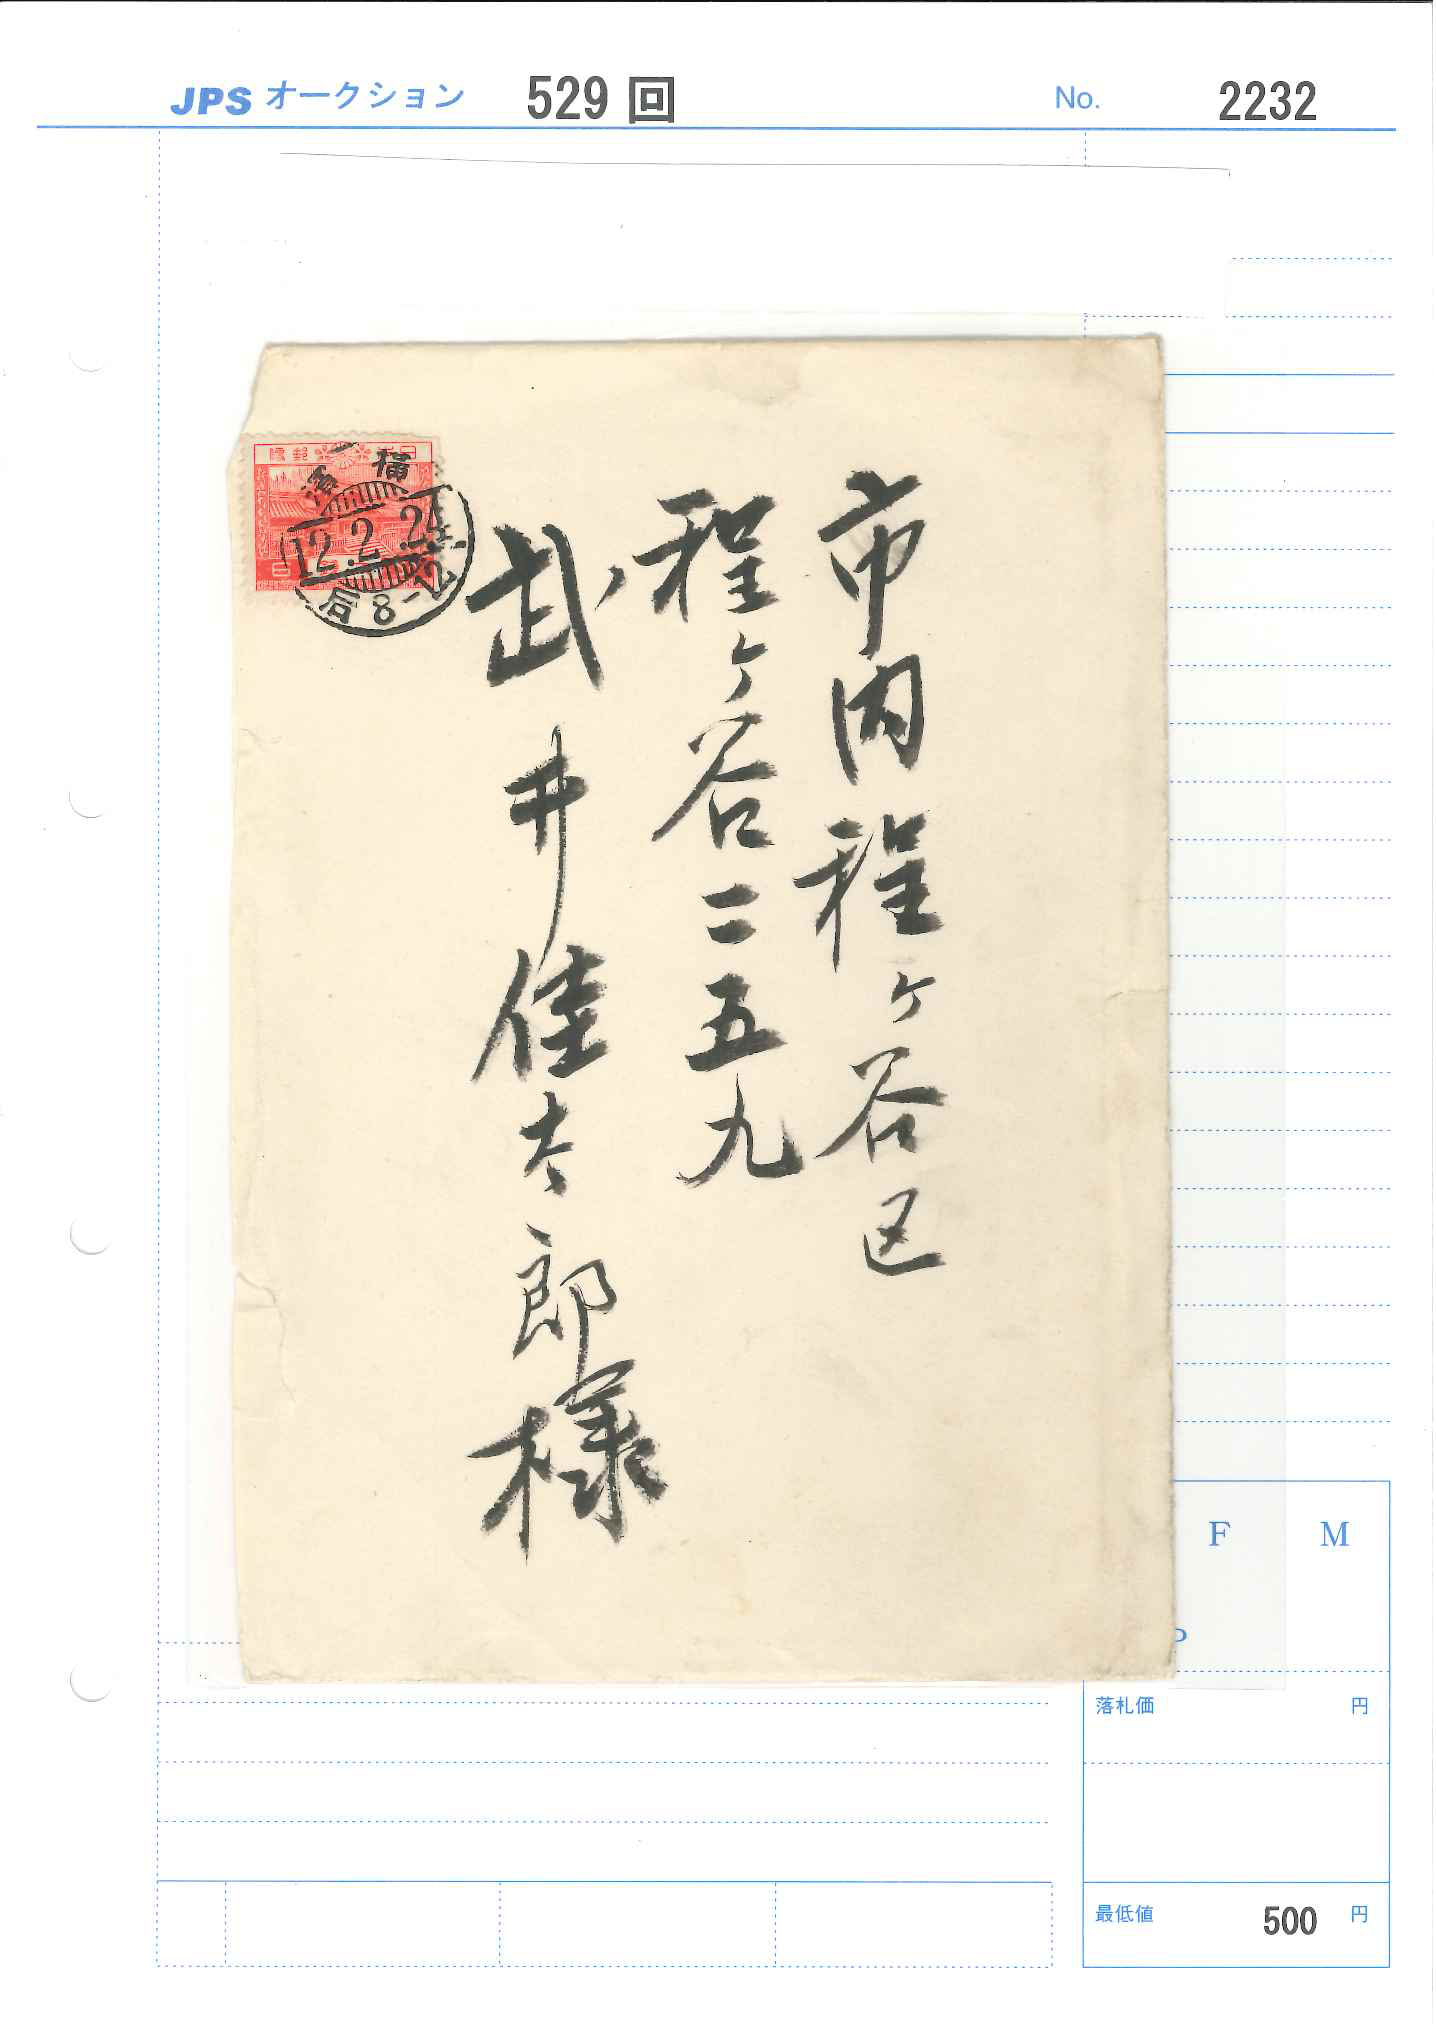 JPS オークション 529 回 No. 2232
横
12.2.24
后 8-12
市内程ヶ谷区
程ヶ谷二五九
武井佳太郎様
F M
落札価 円
最低値 500 円